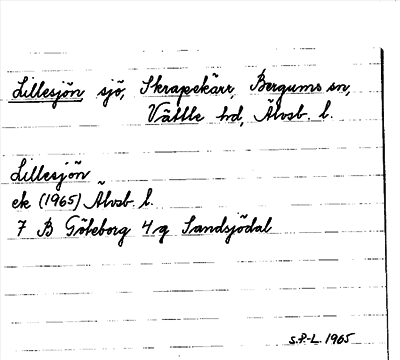 Lillesjön sjö, Skrapekärr, Bergums sn,
Vättle hd, Älvsb. l.
Lillesjön
ek (1965) Älvsb. l.
7 B Göteborg 4 g Sandsjödal
S.P.-L. 1965